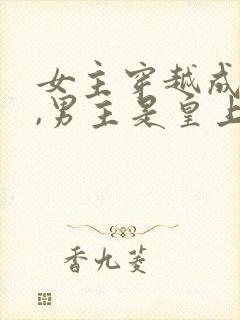 女主穿越成
,男主是皇上
香九菱